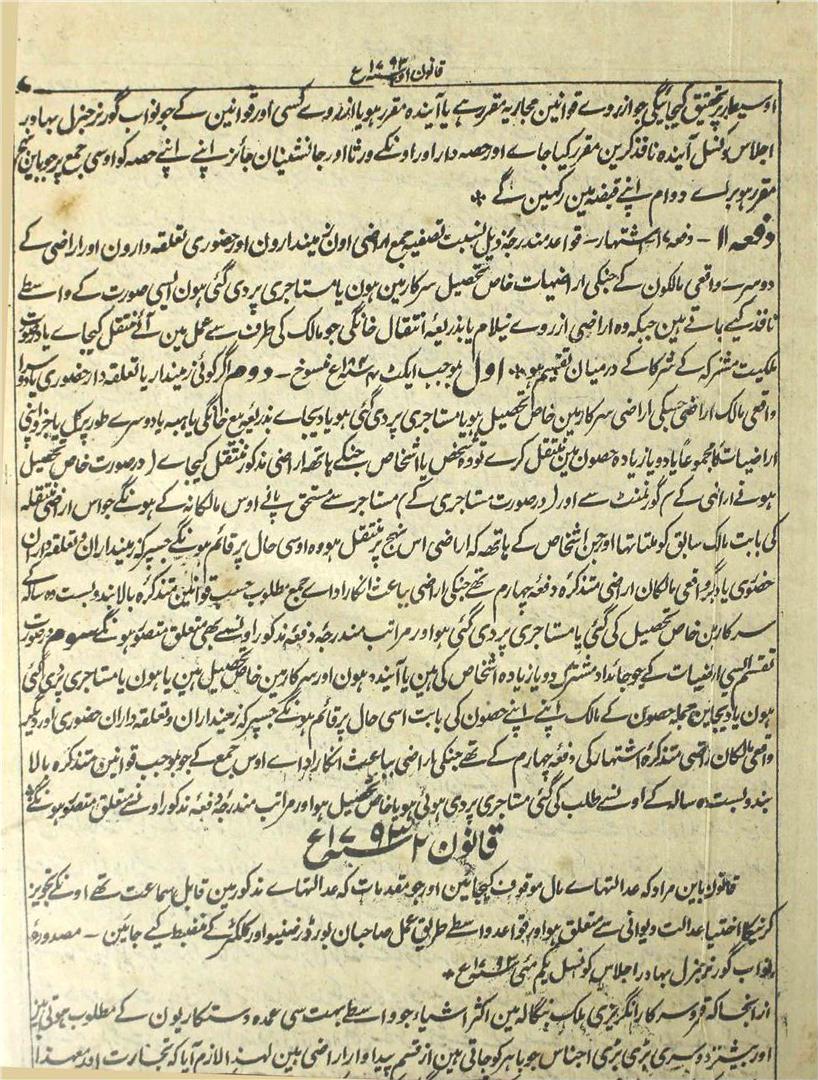 قانون ۱ سنہ ۱۷۹۳ع
اوسیطور پر تحقیق کیجائیگی جو ازروے قوانین مجاریہ مقرر ہے یا آیندہ مقرر ہو یا ازروے کسی اور قوانین کے جو نواب گورنر جنرل بہادر
اجلاس کونسل آیندہ نافذ کرین مقرر کیا جاے اور حصہ دار اور اونکے ورثا اور جانشینان جائز اپنے اپنے حصہ کو اوسی جمع پر جو باین نہج
مقرر ہو براے دوام اپنے قبضہ مین رکھین گے *
دفعہ ۱۱ ۔ دفعہ ۱۰ اشتہار ۔ قواعد مندرجہ ذیل نسبت تصفیہ جمع اراضی اون زمیندارون اور حضوری تعلقہ دارون اور اراضی کے
دوسرے واقعی مالکون کے جنکی اراضیات خاص تحصیل سرکار مین ہون یا مستاجری پر دی گئی ہون ایسی صورت کے واسطے
نافذ کیے جاتے ہین جبکہ وہ اراضی ازروے نیلام یا بذریعہ انتقال خانگی جو مالک کی طرف سے عمل مین آئے منتقل کیجاے یا درصورت
ملکیت مشترکہ کے شرکا کے درمیان تقسیم ہو * اول بموجب ایکٹ سنہ ع منسوخ ۔ دوم اگر کوئی زمیندار یا تعلقہ دار حضوری یا دوسرا
واقعی مالک اراضی جسکی اراضی سرکار مین خاص تحصیل ہو یا مستاجری پر دی گئی ہو یا دیجاے بذریعہ بیع خانگی یا ہبہ یا دوسرے طور پر کل یا جزو اپنی
اراضیات کا مجموعاً یا دو یا زیادہ حصون مین منتقل کرے تو وہ شخص یا اشخاص جنکے ہاتھ اراضی مذکور منتقل کیجاے (درصورت خاص تحصیل
ہونے اراضی کے) گورنمنٹ سے اور (درصورت مستاجری کے) مستاجر سے مستحق پانے اوس مالکانہ کے ہونگے جو اس اراضی منتقلہ
کی بابت مالک سابق کو ملتا تھا اور جن اشخاص کے ہاتھ کہ اراضی اس نہج پر منتقل ہو وہ اوسی حال پر قائم ہونگے جسپر کہ زمینداران و تعلقہ داران
حضوری یا دیگر واقعی مالکان اراضی متذکرہ دفعہ چہارم تھے جنکی اراضی بباعث انکار اداے جمع مطلوب حسب قوانین متذکرہ بالا بندوبست دہ سالہ کے
سرکار مین خاص تحصیل کی گئی یا مستاجری پر دی گئی ہو اور مراتب مندرجہ دفعہ مذکور اونسے بھی متعلق متصور ہونگے سوم درصورت
تقسیم ایسی اراضیات کے جو جائداد مشترک دو یا زیادہ اشخاص کی ہین یا آیندہ ہون اور سرکار مین خاص تحصیل ہین یا ہون یا مستاجری پر دی گئی
ہون یا دیجاین جملہ حصون کے مالک اپنے اپنے حصون کی بابت اسی حال پر قائم ہونگے جسپر کہ زمینداران و تعلقہ داران حضوری اور دیگر
واقعی مالکان اراضی متذکرہ اشتہار کی دفعہ چہارم کے تھے جنکی اراضی بباعث انکار اداے اوس جمع کے جو بموجب قوانین متذکرہ بالا
بندوبست دہ سالہ کے اونسے طلب کی گئی مستاجری پر دی ہوئی ہو یا خاص تحصیل ہو اور مراتب مندرجہ دفعہ مذکور اونسے متعلق متصور ہونگے *
قانون ۲ سنہ ۱۷۹۳ع
قانون باین مراد کہ عدالتہاے مال موقوف کیجائین اور جو مقدمات کہ عدالتہاے مذکور مین قابل سماعت تھے اونکے تجویز
کرنیکا اختیار عدالت دیوانی سے متعلق ہو اور قواعد واسطے طریق عمل صاحبان بورڈ رفینیو اور کلکٹر کے منضبط کیے جائین ۔ مصدورہ
نواب گورنر جنرل بہادر اجلاس کونسل یکم مئی سنہ ۱۷۹۳ع *
ازانجا کہ قلمرو سرکار انگریزی ملک بنگالہ مین اکثر اشیاء جو واسطے بہت سی عمدہ دستکاریون کے مطلوب ہوتی ہین
اور بیشتر دوسری بڑی بڑی اجناس جو باہر کو جاتی ہین از قسم پیداوار اراضی ہین لہذا لازم آیا کہ تجارت اور معہذا